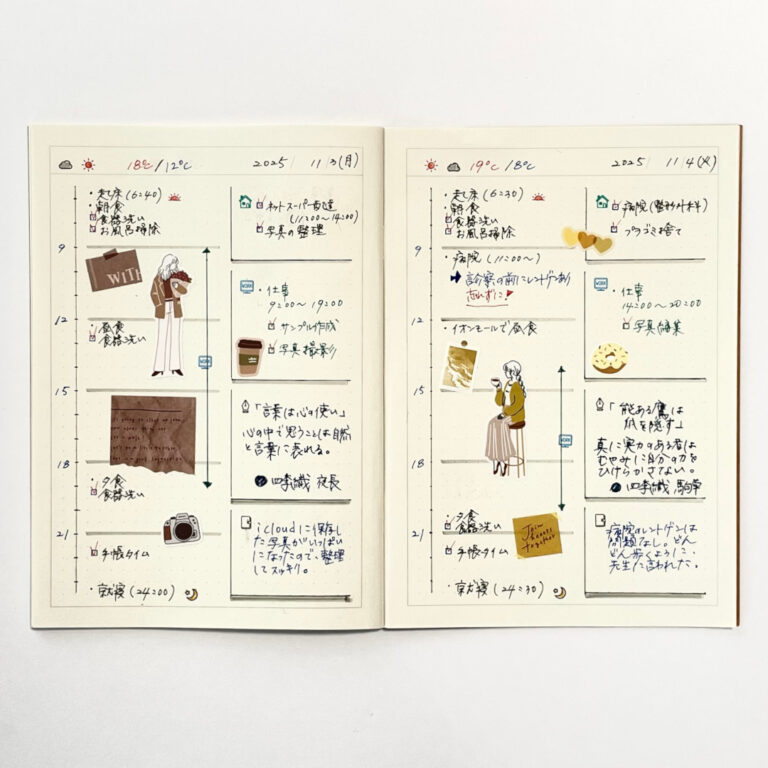 18℃/12℃ 2025 11/3(月)
・起床(6:40)
・朝食
食器洗い
お風呂掃除
9
WITH
12
・昼食
食器洗い
WORK
15
18
・夕食
食器洗い
21
手帳タイム
・就寝(24:00)
ネットスーパー配達
(11:00~14:00)
写真の整理
WORK
・仕事
9:00~19:00
サンプル作成
写真撮影
「言葉は心の使い」
心の中で思うことは自然
と言葉に表れる。
四季織 夜長
icloudに保存し
た写真がいっぱい
になったので、整理
してスッキリ。
19℃/8℃ 2025 11/4(火)
・起床(6:30)
・朝食
食器洗い
お風呂掃除
9
・病院(11:00~)
診察の前にレントゲンあり
忘れずに!
12
・イオンモールで昼食
15
WORK
18
・夕食
食器洗い
21
手帳タイム
Join
hearts
together
・就寝(24:30)
病院(整形外科)
プラゴミ捨て
WORK
・仕事
14:00~20:00
写真編集
「能ある鷹は
爪を隠す」
真に実力のある者は
むやみに自分の力を
ひけらかさない。
四季織
病院のレントゲンは
問題なし。どん
どん歩くように、
先生に言われた。